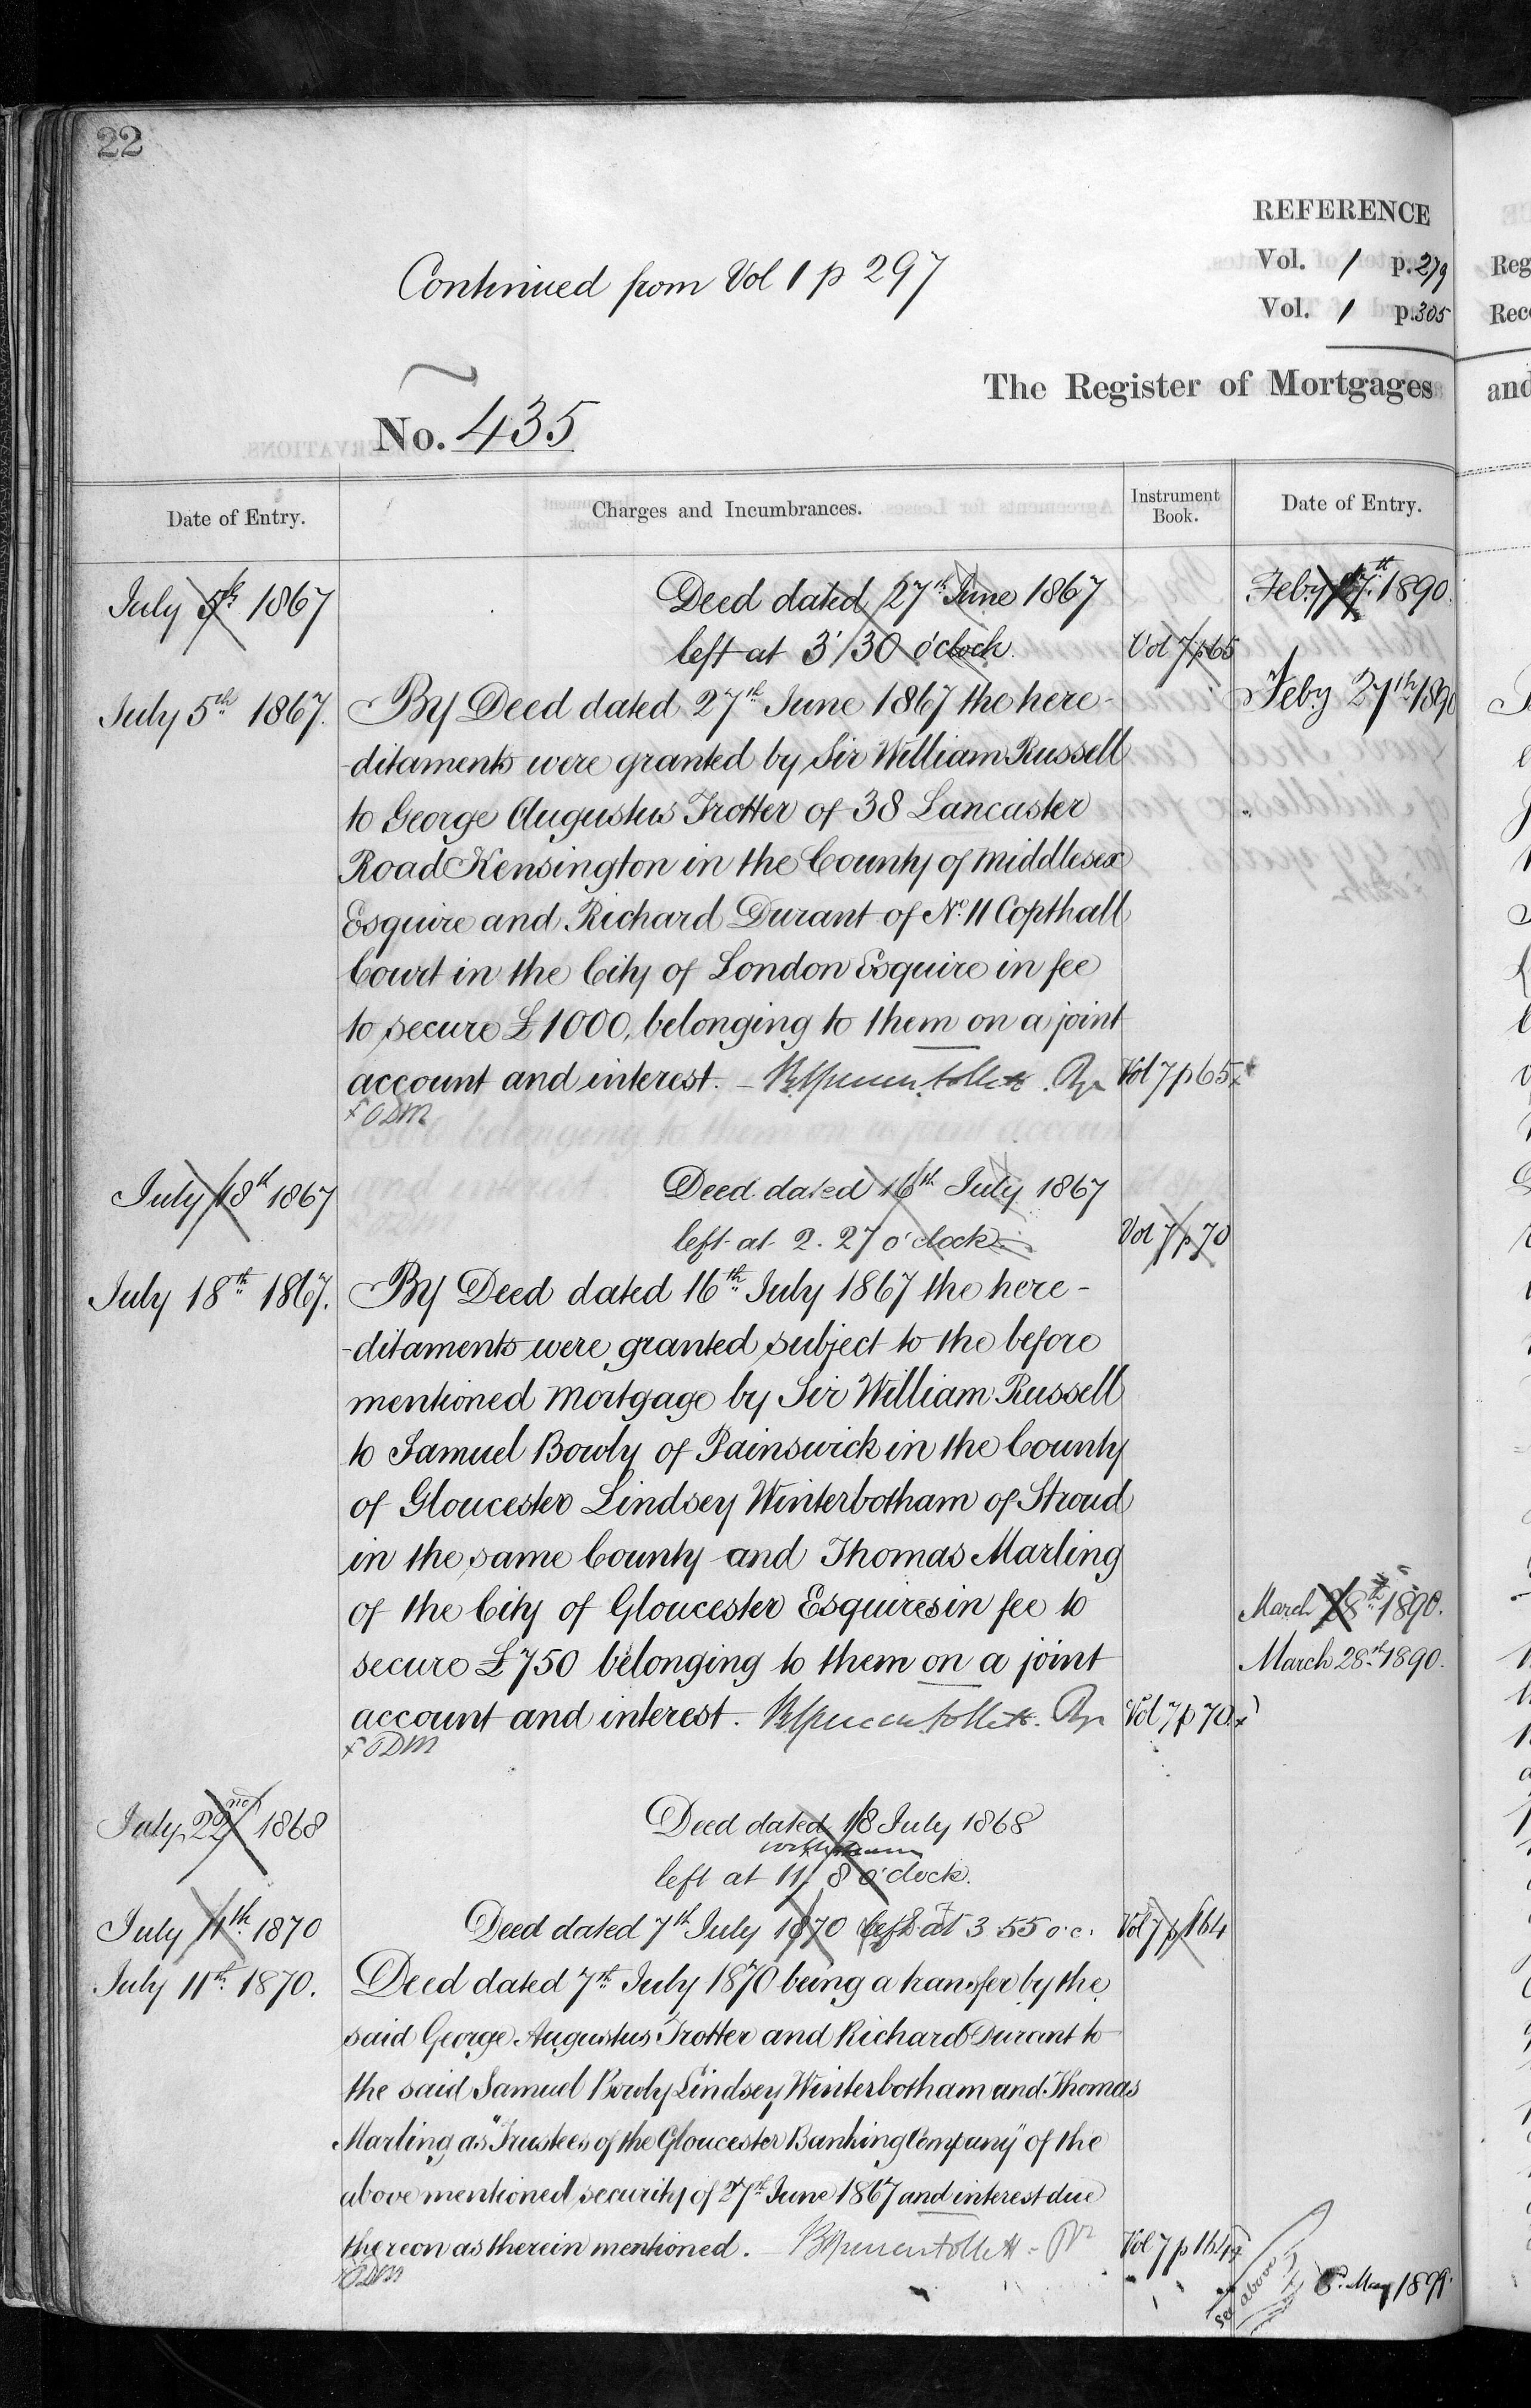 22
REFERENCE
Continued from Vol 1 p 297
Vol. 1 p. 279
Vol. 1 p. 305
The Register of Mortgages
No. 435
Date of Entry.
Charges and Incumbrances.
Instrument Book.
Date of Entry.
July 5th 1867
Deed dated 27th June 1867
left at 3'30 o'clock
Vol 7 p 65
Feby 27th 1890.
July 5th 1867.
By Deed dated 27th June 1867 the here-
-ditaments were granted by Sir William Russell
to George Augustus Trotter of 38 Lancaster
Road Kensington in the County of Middlesex
Esquire and Richard Durant of No. 11 Copthall
Court in the City of London Esquire in fee
to secure £1000, belonging to them on a joint
account and interest.
Vol 7 p 65 x
Feby 27th 1890
x ODM
July 18th 1867
Deed dated 16th July 1867
left at 2. 27 o'clock
Vol 7 p 70
July 18th 1867.
By Deed dated 16th July 1867 the here-
-ditaments were granted subject to the before
mentioned Mortgage by Sir William Russell
to Samuel Bowly of Painswick in the County
of Gloucester Lindsey Winterbotham of Stroud
in the same County and Thomas Marling
of the City of Gloucester Esquires in fee to
secure £750 belonging to them on a joint
account and interest.
Vol 7 p 70 x
March 28th 1890.
March 28th 1890.
x ODM
July 22nd 1868
Deed dated 18 July 1868
left at 11 8 o'clock.
July 11th 1870
Deed dated 7th July 1870 left at 3 55 o.c.
Vol 7 p 164
July 11th 1870.
Deed dated 7th July 1870 being a transfer by the
said George Augustus Trotter and Richard Durant to
the said Samuel Bowly Lindsey Winterbotham and Thomas
Marling as "Trustees of the Gloucester Banking Company" of the
above mentioned security of 27th June 1867 and interest due
thereon as therein mentioned.
Vol 7 p 164 x
ODM
See above
May 1899.
Reg
Rec
and